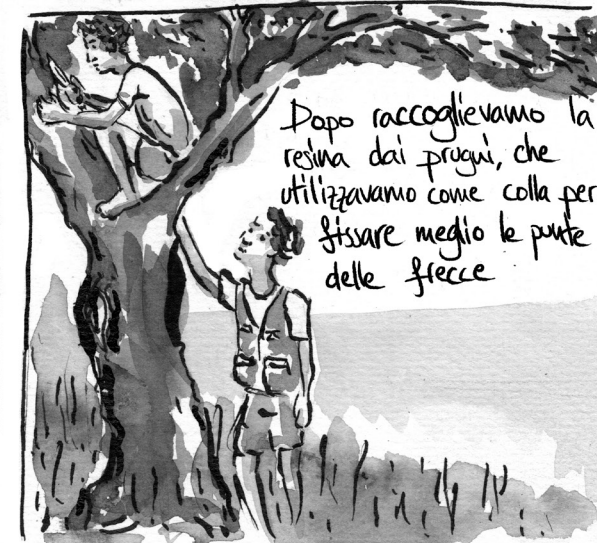 Dopo raccoglievamo la
resina dai prugni, che
utilizzavamo come colla per
fissare meglio le punte
delle frecce